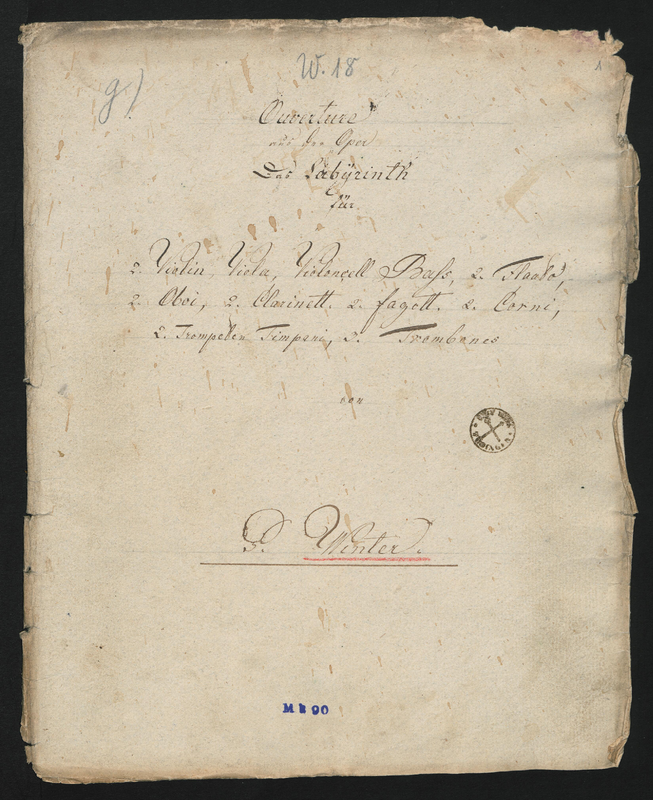 W. 18
g)
1
Ouverture
aus der Oper
Das Labÿrinth
für
2. Violin, Viola, Violoncell Bass, 2. Flauto,
2. Oboi, 2. Clarinett. 2. fagott. 2. Corni,
2. Trompeten Timpani, 3. Trombones
von
P. Winter.
M k 90